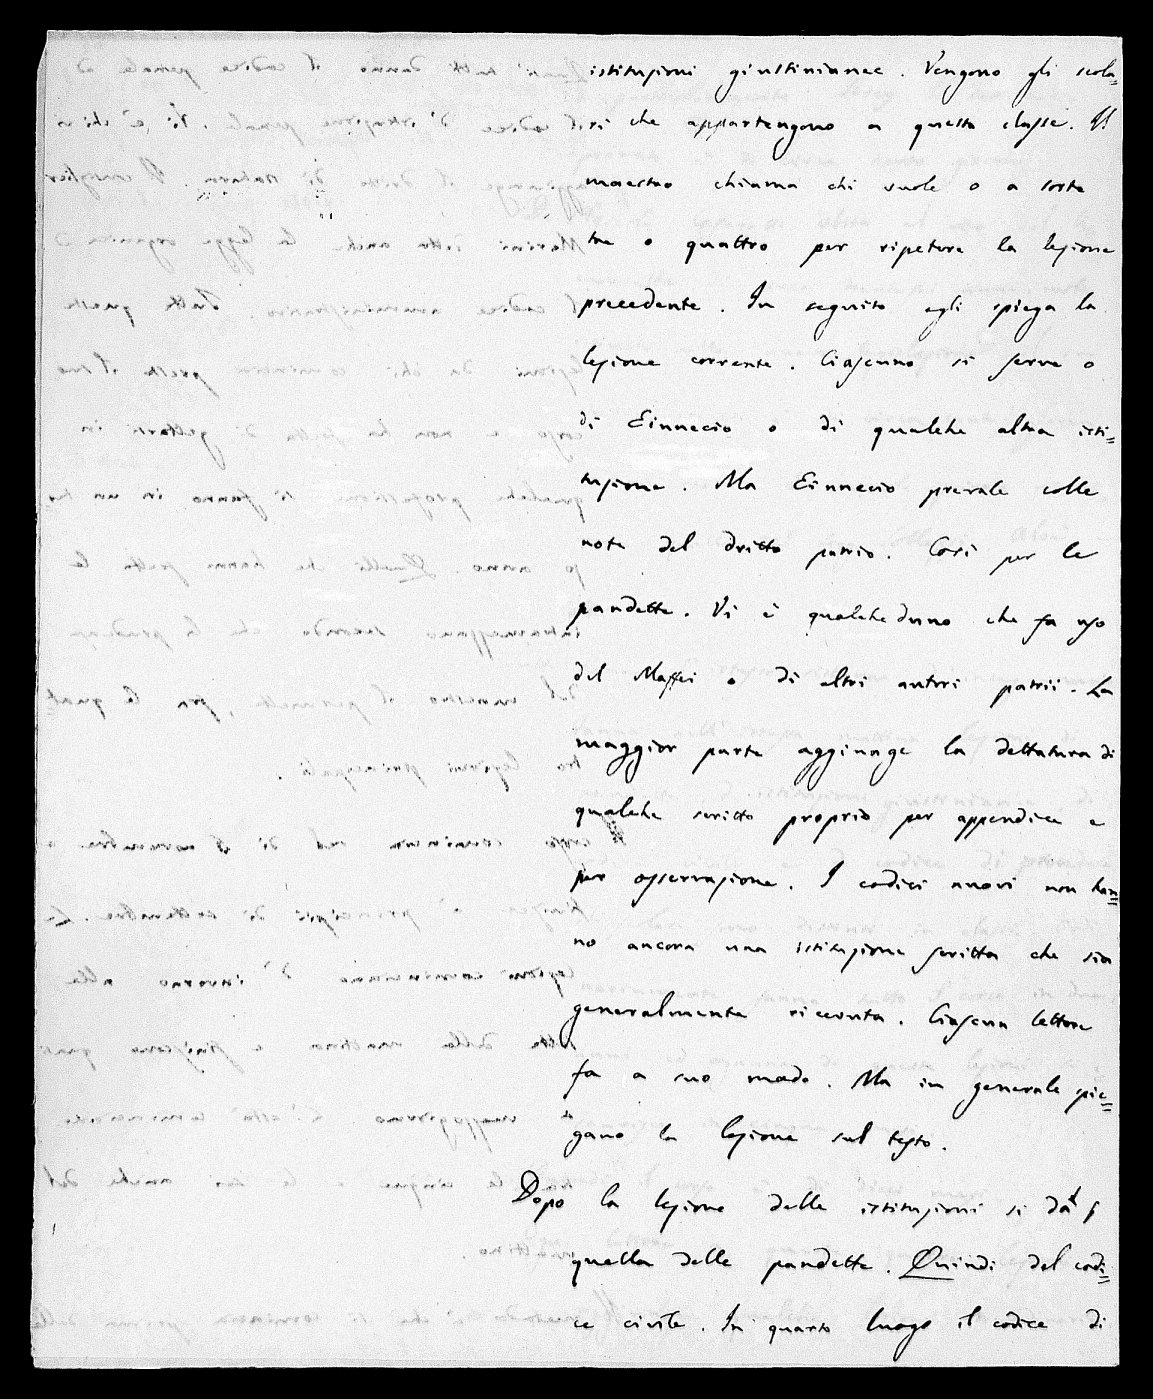 istituzioni giustinianee. Vengono gli scola=
ri che appartengono a questa classe. Il
maestro chiama chi vuole o a sorte
tre o quattro per ripetere la lezione
precedente. In seguito egli spiega la
lezione corrente. Ciascuno si serve o
di Einnecio o di qualche altra isti=
tuzione. Ma Einnecio prevale colle
note del dritto patrio. Così per le
pandette. Vi è qualcheduno che fa uso
del Maffei o di altri autori patrii. La
maggior parte aggiunge la dettatura di
qualche scritto proprio per appendice e
per osservazione. I codici nuovi non han=
no ancora una istituzione scritta che sia
generalmente ricevuta. Ciascun lettore
fa a suo modo. Ma in generale spie=
gano la lezione sul testo.
Dopo la lezione delle istituzioni si dà
quella delle pandette. Quindi del codi=
ce civile. In quarto luogo il codice di